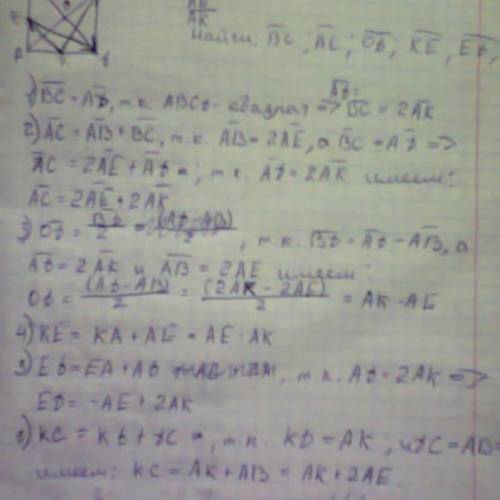 E
AK
Найти: BC; AC; OD; KE; ED;
1) BC = AD, т.к. ABCD - квадрат => AD = BC = 2AK
2) AC = AB + BC, т.к. AB = 2AE, а BC = AD =>
AC = 2AE + AD; т.к. AD = 2AK имеем:
AC = 2AE + 2AK
3) OD = BD/2 = (AD - AB)/2, т.к. BD = AD - AB, а
AD = 2AK и AB = 2AE имеем
OD = (AD - AB)/2 = (2AK - 2AE)/2 = AK - AE
4) KE = KA + AE = AE - AK
5) ED = EA + AD, т.к. AD = 2AK =>
ED = -AE + 2AK
6) KC = KD + DC, т.к. KD = AK, и DC = AB =
имеем: KC = AK + AB = AK + 2AE.